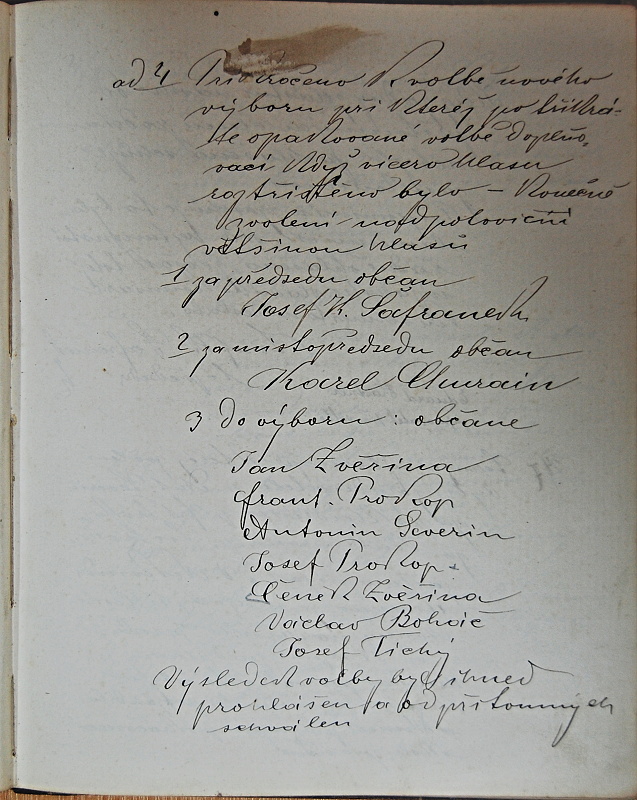 ad 4 Prikročeno k volbě nového
výboru při kteréj po tříkrá-
te opakované volbě doplňo-
vací když vícero hlasu
roztříštěno bylo – konečně
zvoleni nadpoloviční
většinou hlasů
1 za předsedu občan
Josef H. Šafranek
2 za místopředsedu občan
Karel Churain
3 do výboru: občane
Jan Zvěřina
Frant. Prokop
Antonin Severin
Josef Prokop
Čeněk Zvěřina
Vaclav Boháč
Josef Tichý
Výsledek volby byl ihned
prohlášen a od přítomných
schválen